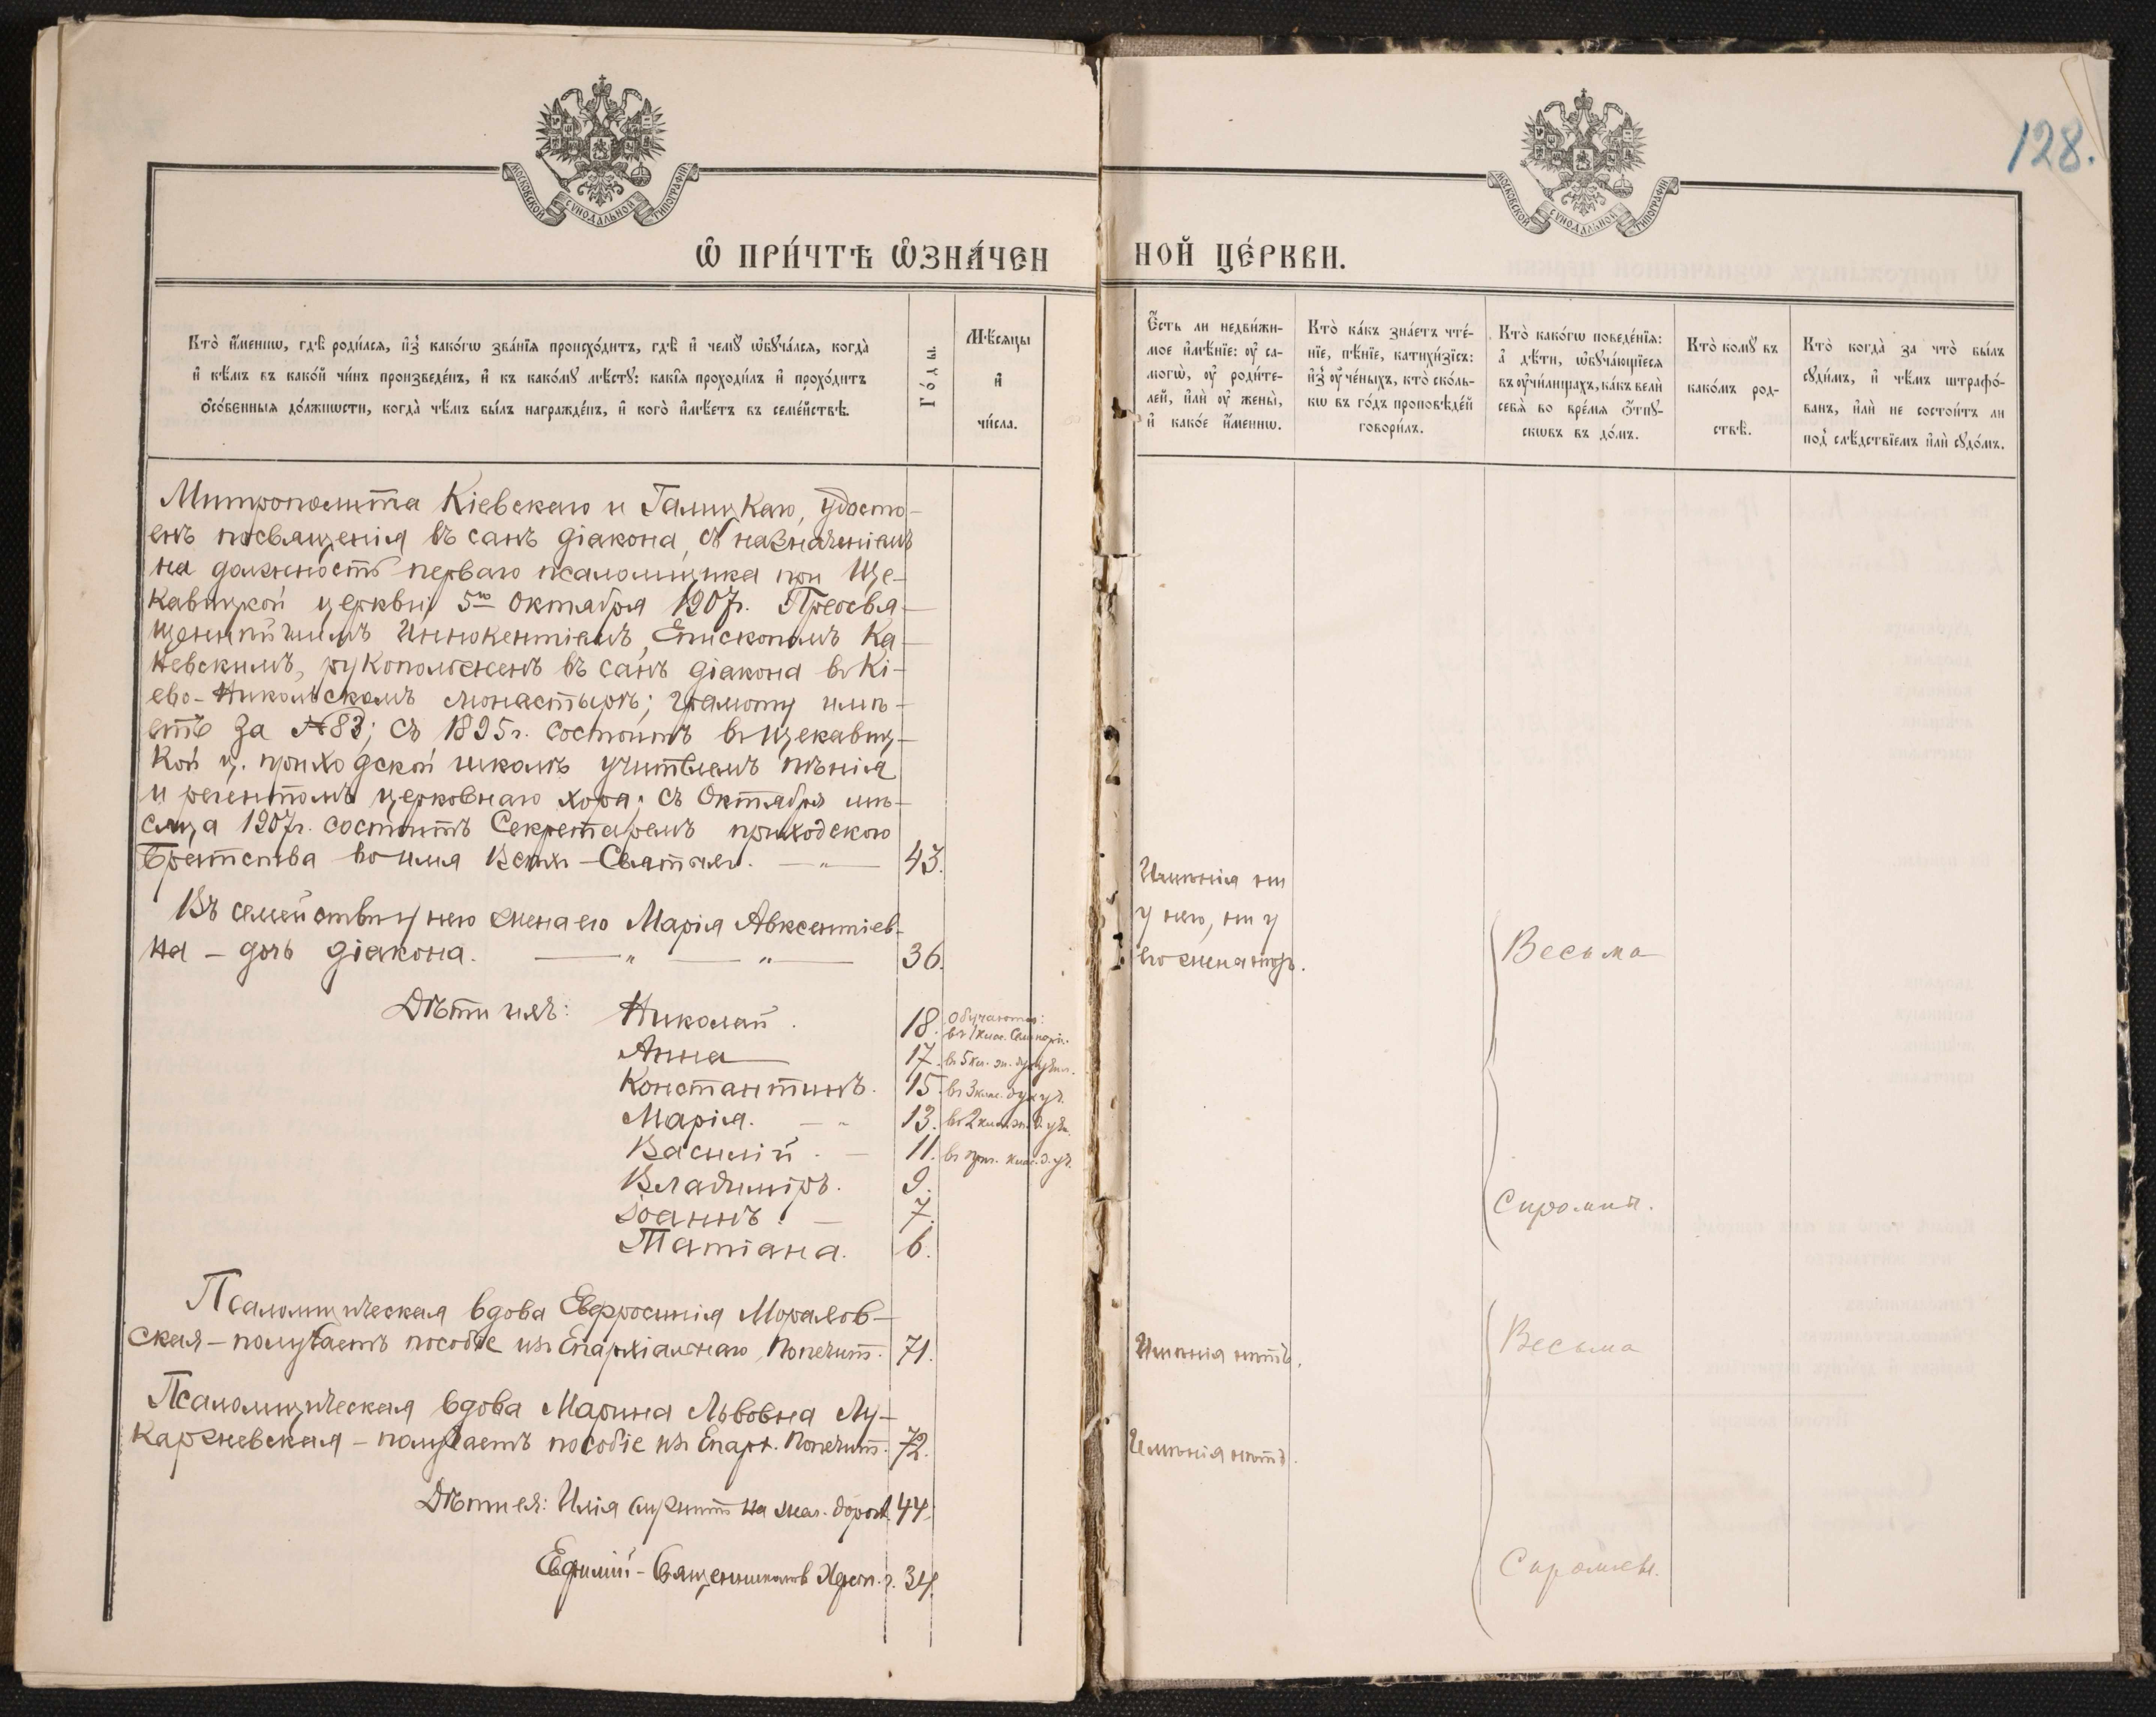 128.
МОСКОВСКОЙ СУНОДАЛЬНОЙ ТИПОГРАФІИ
МОСКОВСКОЙ СУНОДАЛЬНОЙ ТИПОГРАФІИ
Ѽ ПРИ́ЧТѢ Ѡ҆ЗНА́ЧЕН
НОЙ ЦЕ́РКВИ.
Кто̀ и҆́менно, гдѣ̀ роди́лся, и҆з̾ како́гѡ зва́нїя происхо́дитъ, гдѣ̀ и҆ чемꙋ̀ ѡ҆бꙋча́лся, когда̀
и҆ кѣ́мъ въ како́й чи́нъ произведе́нъ, и҆ къ како́мꙋ мѣ́стꙋ: какі̑ѧ проходи́лъ и҆ прохо́дитъ
ѻ҆со́бенныѧ до́лжности, когда̀ чѣ́мъ бы́лъ награжде́нъ, и҆ кого̀ и҆мѣ́етъ въ семе́йствѣ.
Го́ды
Мѣ́сяцы
и҆
чи́сла.
Є҆́сть ли недви́жи-
мое и҆мѣ́нїе: ᲂу҆ са-
могѡ̀, ᲂу҆ роди́те-
лей, и҆лѝ ᲂу҆ жены̀,
и҆ како́е и҆́менно.
Кто̀ ка́къ зна́етъ чте́-
нїе, пѣ́нїе, катихи́зїсъ:
и҆з̾ ᲂу҆че́ныхъ, кто̀ ско́ль-
кѡ въ го́дъ проповѣ́дей
говори́лъ.
Кто̀ како́гѡ поведе́нїя:
а҆ дѣ́ти, ѡ҆бꙋча́ющїеся
въ ᲂу҆чи́лищахъ, ка́къ велѝ
себѧ̀ во вре́мя ѿпꙋ-
сковъ въ до́мъ.
Кто̀ комꙋ̀ въ
како́мъ род-
ствѣ̀.
Кто̀ когда̀ за что̀ бы́лъ
сꙋди́мъ, и҆ чѣ́мъ штрафо́-
ванъ, и҆лѝ не состои́тъ ли
под̾ слѣ́дствїемъ и҆лѝ сꙋдо́мъ.
Митрополита Кіевскаго и Галицкаго, удосто-
енъ посвященія въ санъ діакона, съ назначеніемъ
на должность перваго псаломщика при Ще-
кавицкой церкви; 5го Октября 1907г. Преосвя-
щеннѣйшимъ Иннокентіемъ, Епископомъ Ка-
невскимъ, рукоположенъ въ санъ діакона въ Кі-
ево-Никольскомъ монастырѣ; грамоту имѣ-
етъ за №83; съ 1895г. состоитъ въ Щекавиц-
кой ц. приходской школѣ учителемъ пѣнія
и регентомъ церковнаго хора; съ Октября мѣ-
сяца 1907г. состоитъ Секретаремъ приходскаго
Братства во имя Всѣхъ-Святыхъ. — „ — 43.
Въ семействѣ у него жена его Марія Авксентіев-
на - дочь діакона. — „ — „ — 36.
Имѣнія ни
у него, ни у
его жены нѣтъ.
Весьма
Дѣти ихъ: Николай. 18. Обучаются:
въ 1 клас. Семинаріи.
Анна 17. въ 5 кл.
Константинъ. 15. въ 3 клас. дух. уч.
Марія. — „ 13. въ 2 кл.
Василій. — 11. въ приг. клас. д. уч.
Владиміръ. 9.
Іоаннъ. — 7.
Татіана. 6.
Скромныя.
Псаломщическая вдова Евфросинія Моралев-
ская - получаетъ пособіе изъ Епархіальнаго Попечит. 71.
Имѣнія нѣтъ.
Весьма
Псаломщическая вдова Марина Львовна Лу-
каржевская - получаетъ пособіе изъ Епарх. Попечит. 72.
Имѣнія нѣтъ.
Дѣти ея: Илія служитъ на жел. дорогѣ. 44.
Евфимій - Священникомъ Херсон. г. 34.
Скромны.